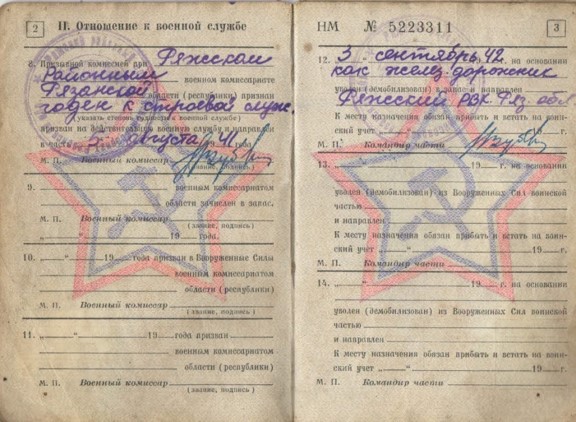 2
II. Отношение к военной службе
8. Призывной комиссией при Ряжском
Районным военном комиссариате
Рязанской области (республики) признан
годен к строевой служ.
(указать степень годности к военной службе)
призван на действительную военную службу и направлен
в часть 5 августа 41 г.
М. П. Военный комиссар
(звание, подпись)
9. военным комиссариатом
области зачислен в запас.
М. П. Военный комиссар
(звание, подпись)
„ “ 19 года.
10. „ “ 19 года призван в Вооруженные Силы
военным комиссариатом
области (республики)
М. П. Военный комиссар
(звание, подпись)
11. „ “ 19 года призван
военным комиссариатом
области (республики)
М. П. Военный комиссар
(звание, подпись)
НМ № 5223311
3
12. 3 сентябрь 42. на основании
как желез-дорожник
уволен (демобилизован) в запас и направлен
Ряжский РВК Ряз. обл
К месту назначения обязан прибыть и встать на воин-
ский учет „ “ 19 г.
М. П. Командир части
13. „ “ 19 г. на основании
уволен (демобилизован) из Вооруженных Сил воинской
частью
и направлен
К месту назначения обязан прибыть и встать на воин-
ский учет „ “ 19 г.
М. П. Командир части
14. „ “ 19 г. на основании
уволен (демобилизован) из Вооруженных Сил воинской
частью
и направлен
К месту назначения обязан прибыть и встать на воин-
ский учет „ “ 19 г.
М. П. Командир части